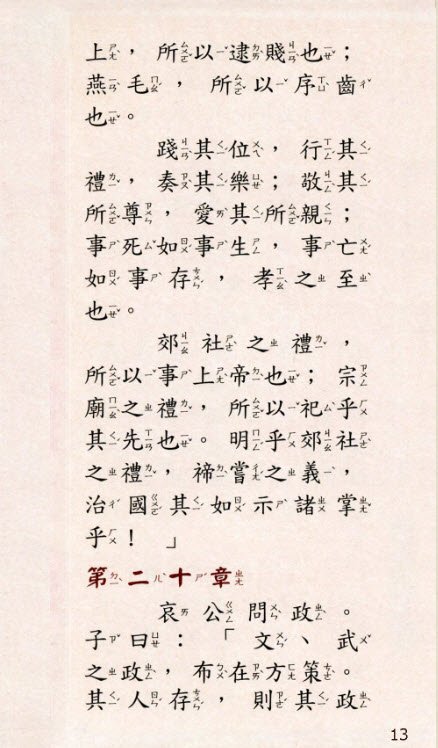 上，所以逮賤也；
燕毛，所以序齒
也。
踐其位，行其
禮，奏其樂；敬其
所尊，愛其所親；
事死如事生，事亡
如事存，孝之至
也。
郊社之禮，
所以事上帝也；宗
廟之禮，所以祀乎
其先也。明乎郊社
之禮，禘嘗之義，
治國其如示諸掌
乎！」
第二十章
哀公問政。
子曰：「文、武
之政，布在方策。
其人存，則其政
13